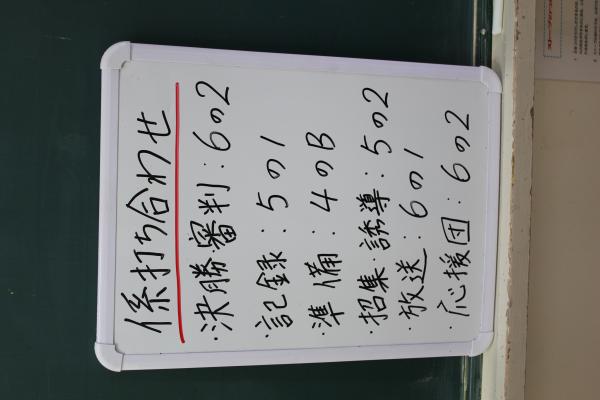 係打ち合わせ
・決勝審判:6の2
・記録:5の1
・準備:4のB
・招集・誘導:5の2
・放送:6の1
・応援団:6の2